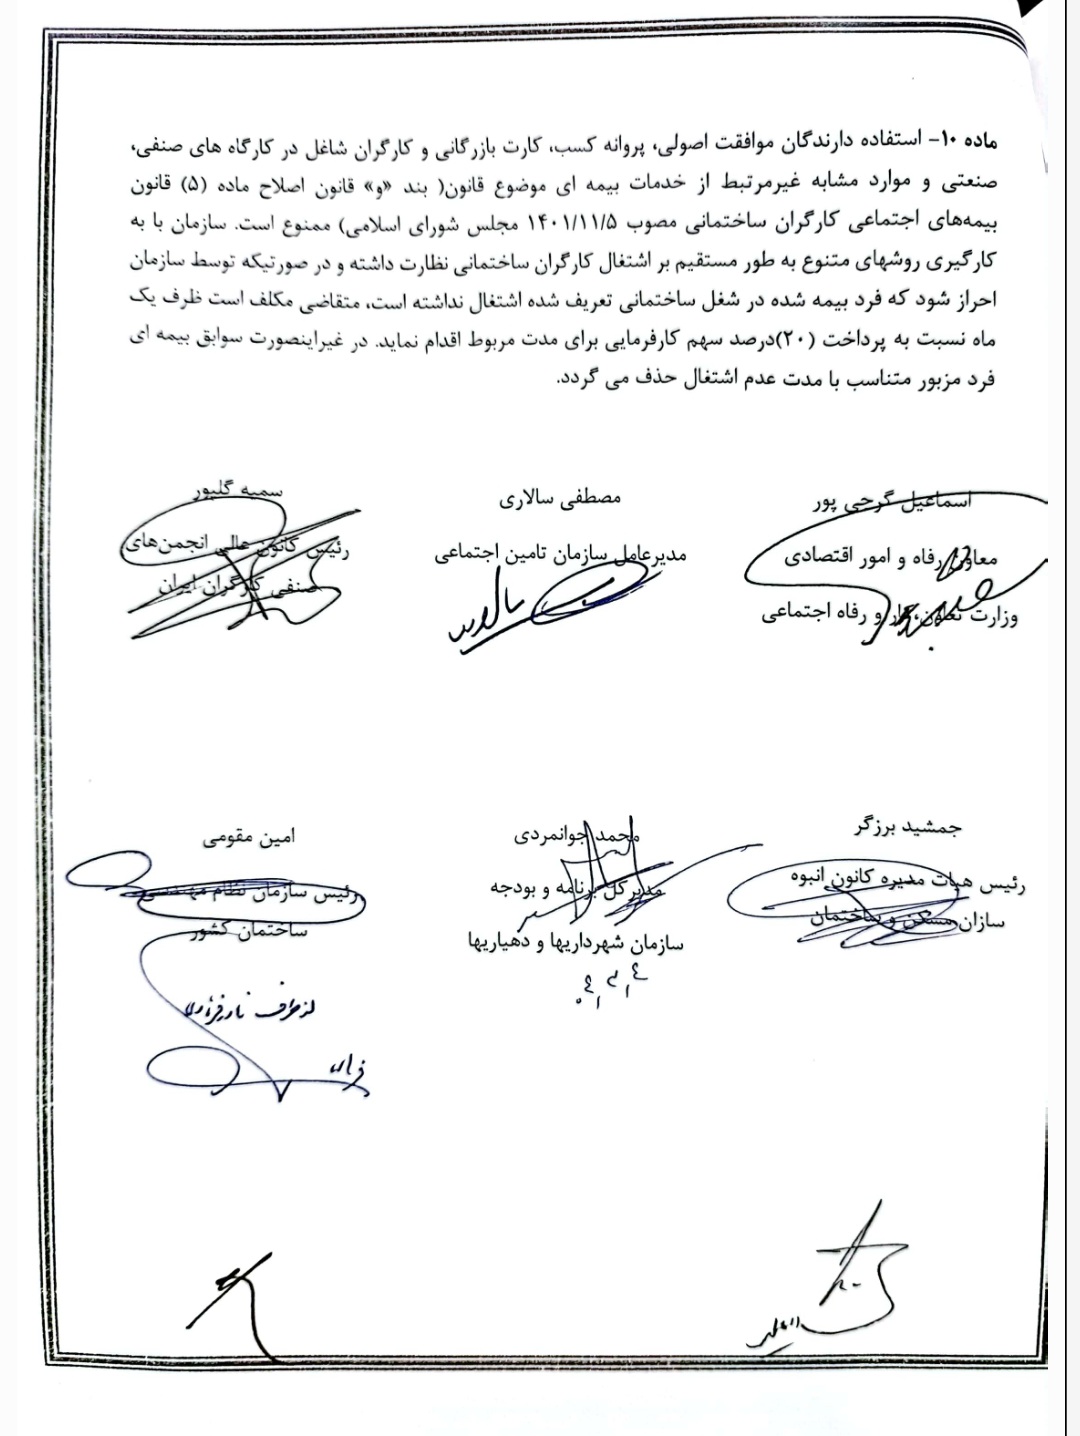 ماده ۱۰- استفاده دارندگان موافقت اصولی، پروانه کسب، کارت بازرگانی و کارگران شاغل در کارگاه های صنفی،
صنعتی و موارد مشابه غیرمرتبط از خدمات بیمه ای موضوع قانون( بند «و» قانون اصلاح ماده (۵) قانون
بیمه‌های اجتماعی کارگران ساختمانی مصوب ۱۴۰۱/۱۱/۵ مجلس شورای اسلامی) ممنوع است. سازمان با به
کارگیری روشهای متنوع به طور مستقیم بر اشتغال کارگران ساختمانی نظارت داشته و در صورتیکه توسط سازمان
احراز شود که فرد بیمه شده در شغل ساختمانی تعریف شده اشتغال نداشته است، متقاضی مکلف است ظرف یک
ماه نسبت به پرداخت (۲۰)درصد سهم کارفرمایی برای مدت مربوط اقدام نماید. در غیراینصورت سوابق بیمه ای
فرد مزبور متناسب با مدت عدم اشتغال حذف می گردد.
اسماعیل گرجی پور
معاون رفاه و امور اقتصادی
وزارت تعاون، کار و رفاه اجتماعی
مصطفی سالاری
مدیرعامل سازمان تامین اجتماعی
سمیه گلپور
رئیس کانون عالی انجمن‌های
صنفی کارگران ایران
جمشید برزگر
رئیس هیات مدیره کانون انبوه
سازان مسکن و ساختمان
محمد جوانمردی
مدیرکل برنامه و بودجه
سازمان شهرداریها و دهیاریها
امین مقومی
رئیس سازمان نظام مهندسی
ساختمان کشور
از طرف